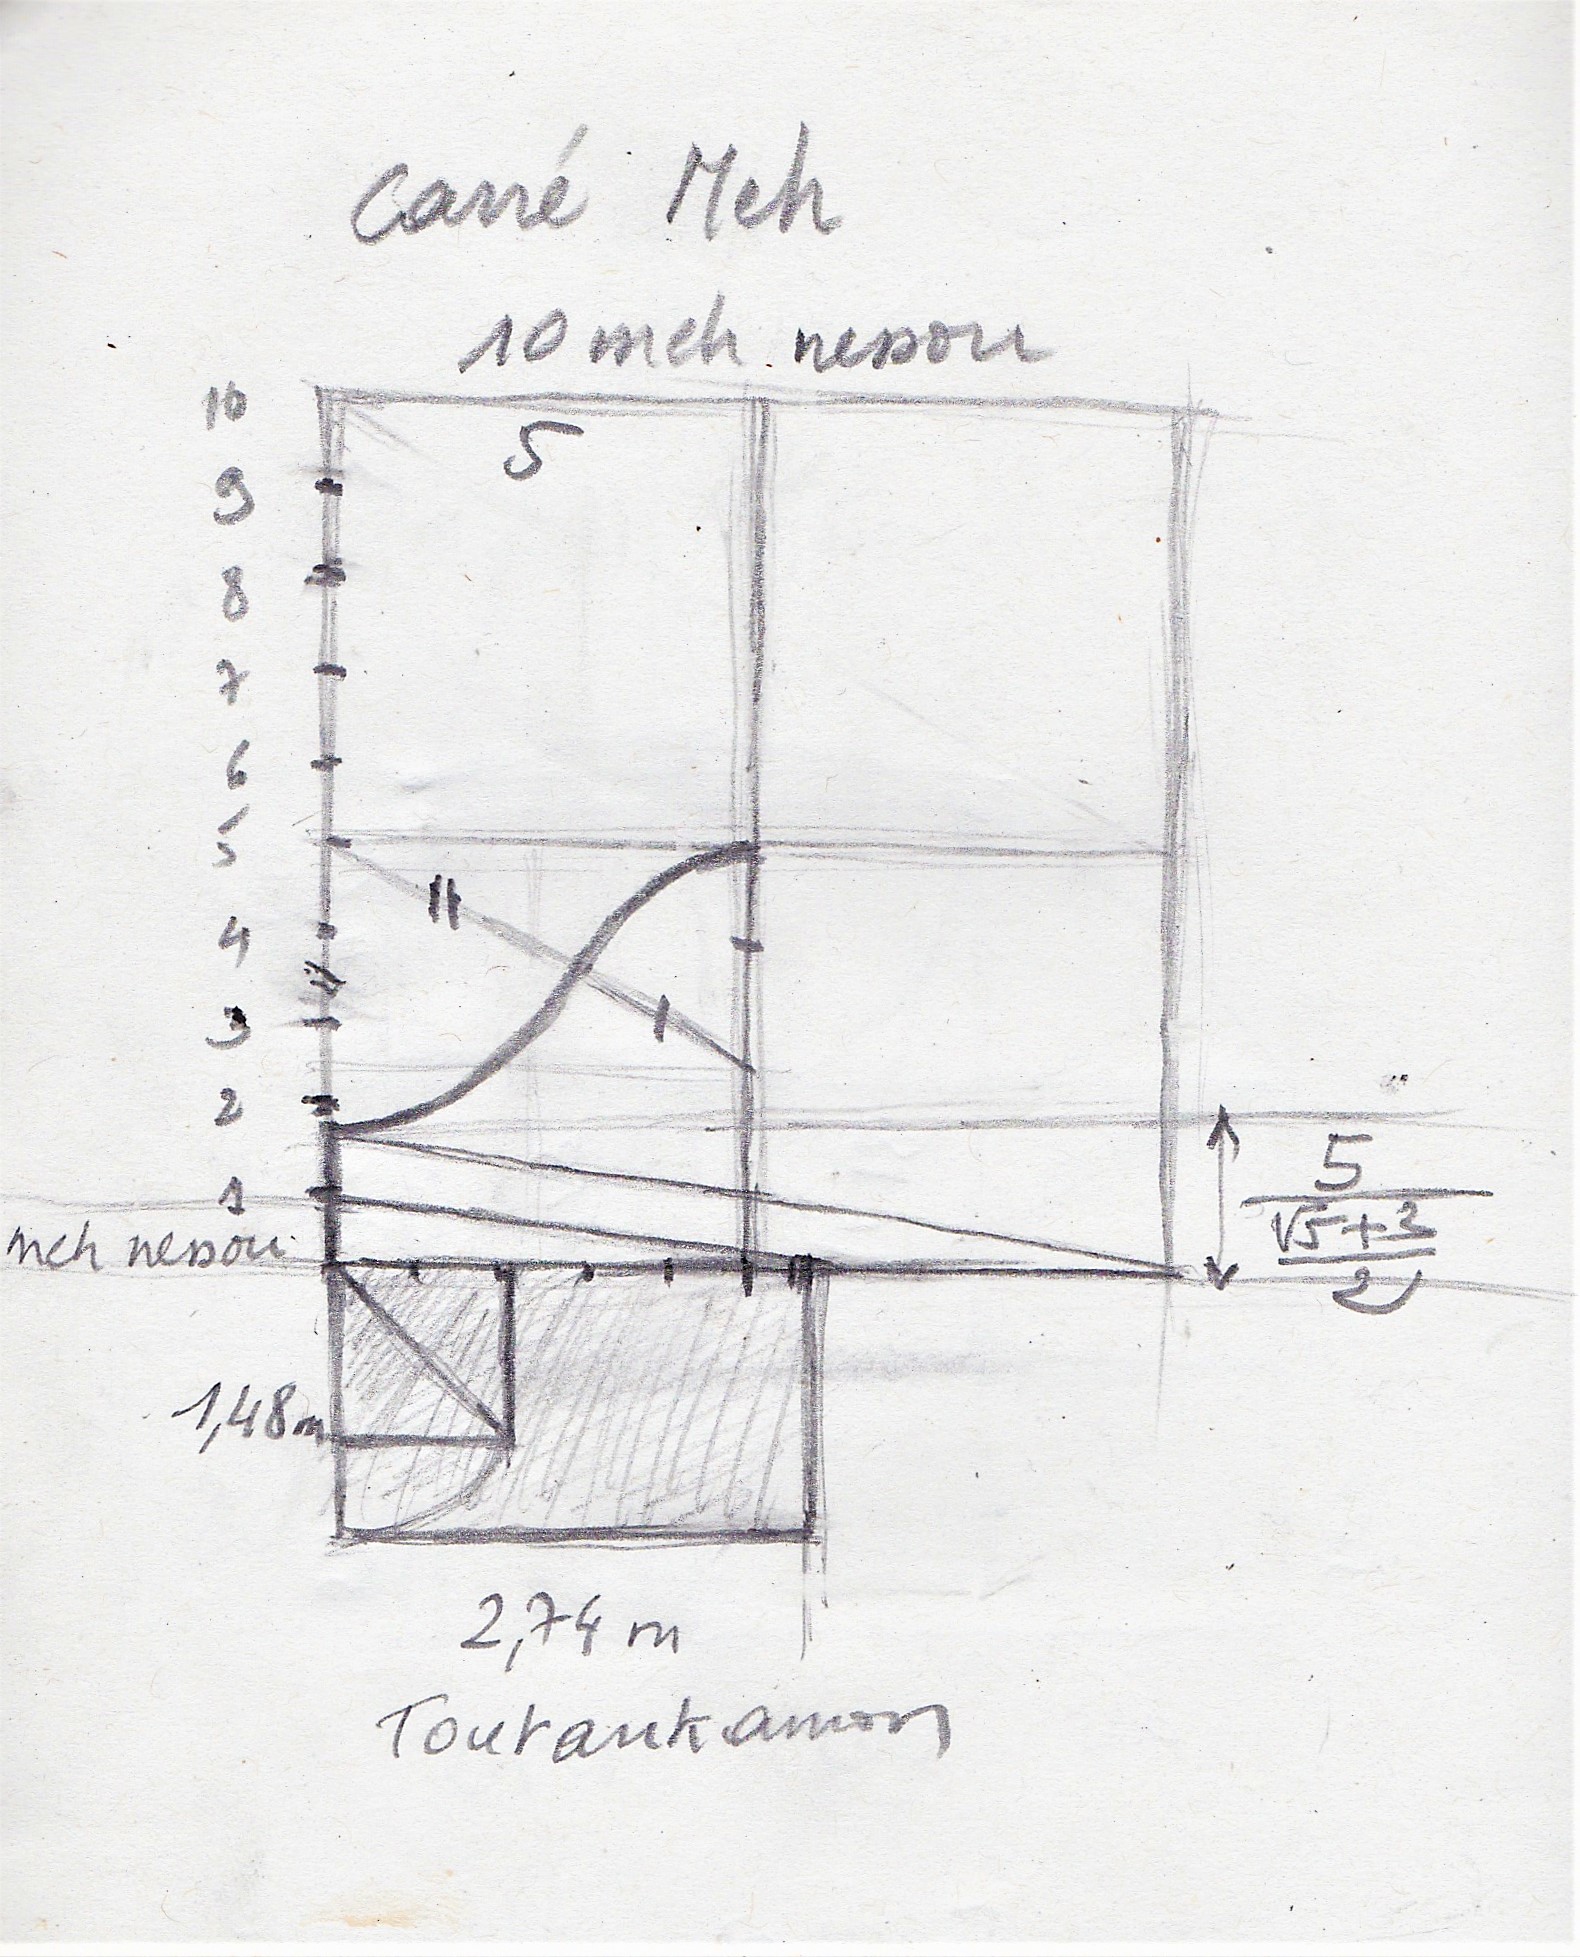 Carré Meh
10 meh nessou
10
5
9
8
7
6
5
4
3
2
1
meh nessou
5
√5+3
2
1,48m
2,74 m
Toutankamon